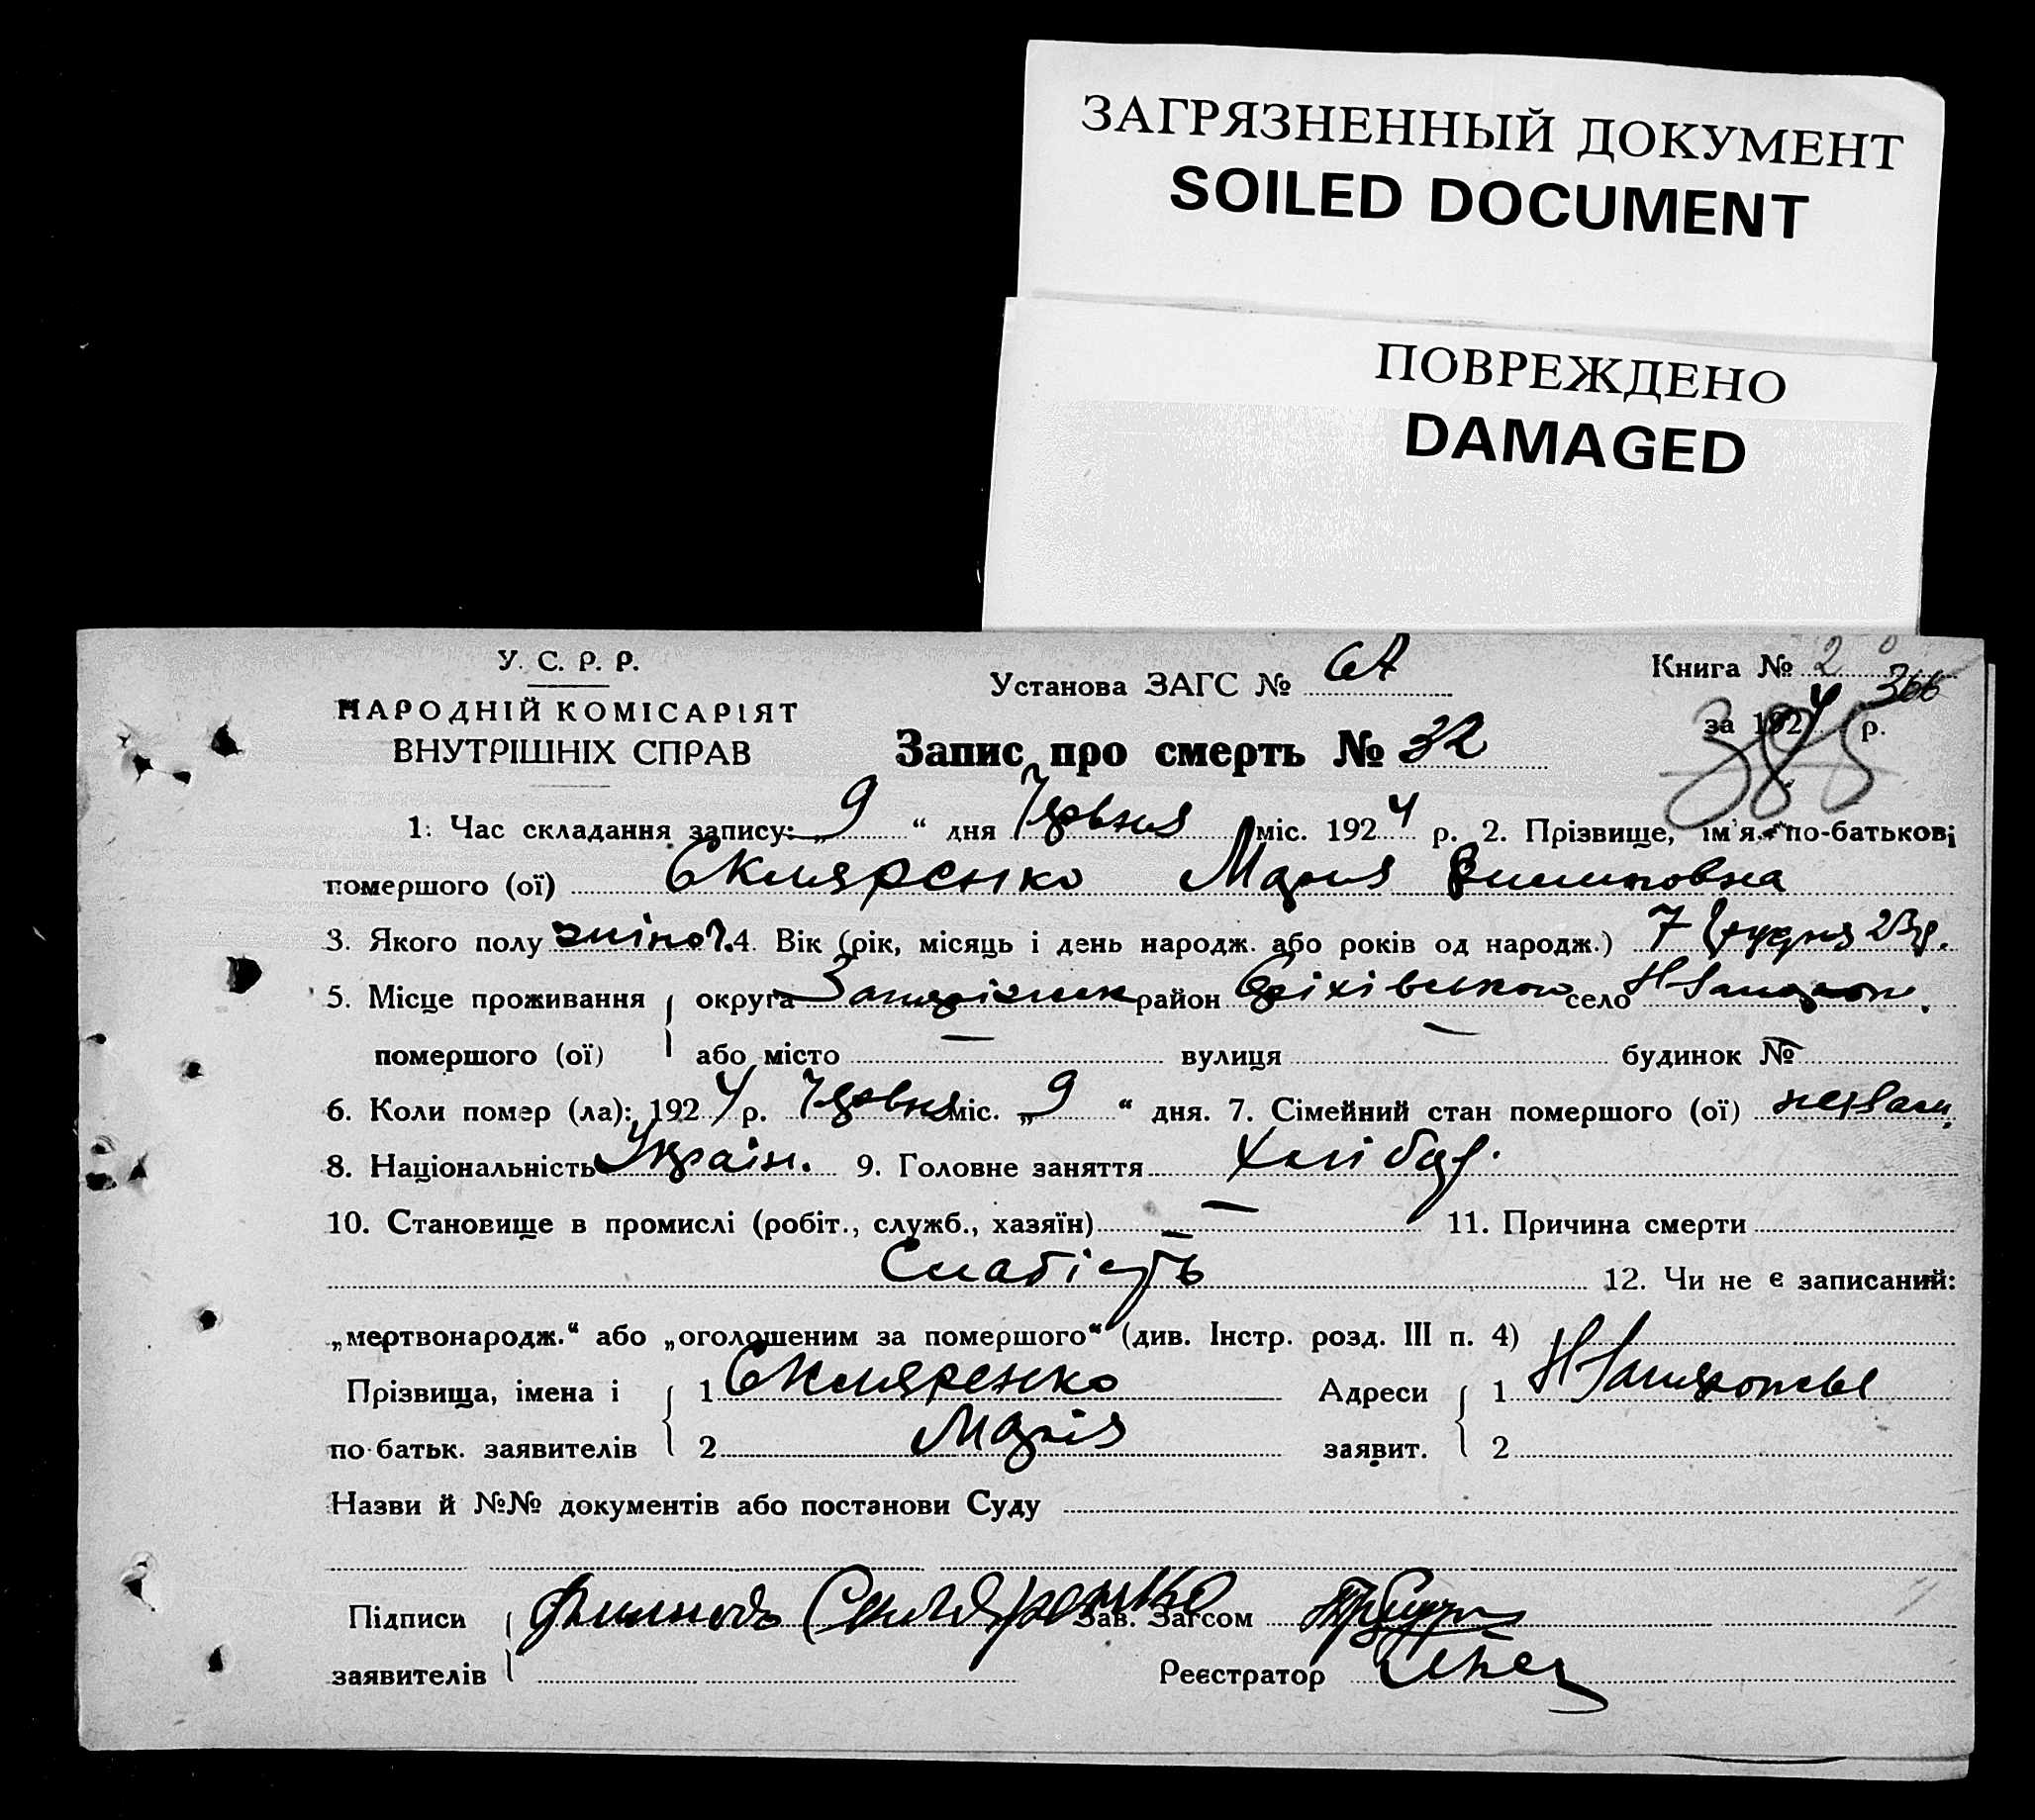 ЗАГРЯЗНЕННЫЙ ДОКУМЕНТ
SOILED DOCUMENT
ПОВРЕЖДЕНО
DAMAGED
У. С. Р. Р.
НАРОДНІЙ КОМІСАРІЯТ
ВНУТРІШНІХ СПРАВ
Установа ЗАГС №
Книга № 2
366
за 1924 р.
385
Запис про смерть № 32
1. Час складання запису: „9“ дня Червня міс. 1924 р. 2. Прізвище, ім'я, по-батькові
помершого (ої) Скляренко Мария Филиповна
3. Якого полу жіноч. 4. Вік (рік, місяць і день народж. або років од народж.) 7 Грудня 23р.
5. Місце проживання округа Запоріжск район Оріхівський село
помершого (ої) або місто — вулиця — будинок № —
6. Коли помер (ла): 1924 р. Червня міс. „9“ дня. 7. Сімейний стан помершого (ої)
8. Національність Україн. 9. Головне заняття Хлібор.
10. Становище в промислі (робіт., служб., хазяїн) — 11. Причина смерти
Слабість 12. Чи не є записаний:
„мертвонародж.“ або „оголошеним за помершого“ (див. Інстр. розд. III п. 4)
Прізвища, імена і 1 Скляренко Адреси 1
по-батьк. заявителів 2 Марія заявит. 2
Назви й №№ документів або постанови Суду
Підписи Скляренко Зав. Загсом
заявителів Реєстратор